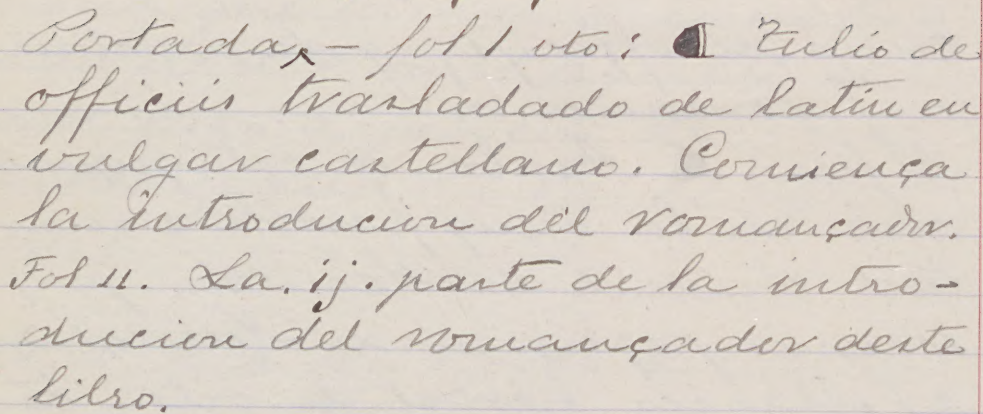 Portada, — fol 1 vto: ¶ Tulio de
officiis trasladado de latin en
vulgar castellano. Comiença
la introducion del romançador.
Fol 11. La. ij. parte de la intro-
ducion del romançador deste
libro.